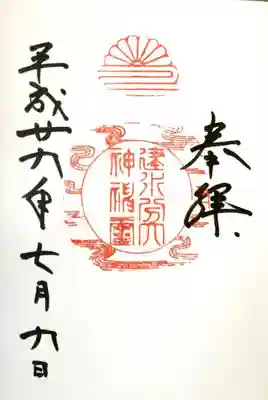 奉拝
建水分
神社
平成廿六年七月九日